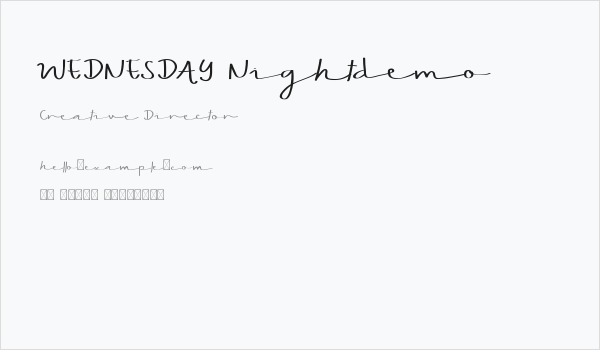 WEDNESDAY Nightdemo
Creative Director
hello example com